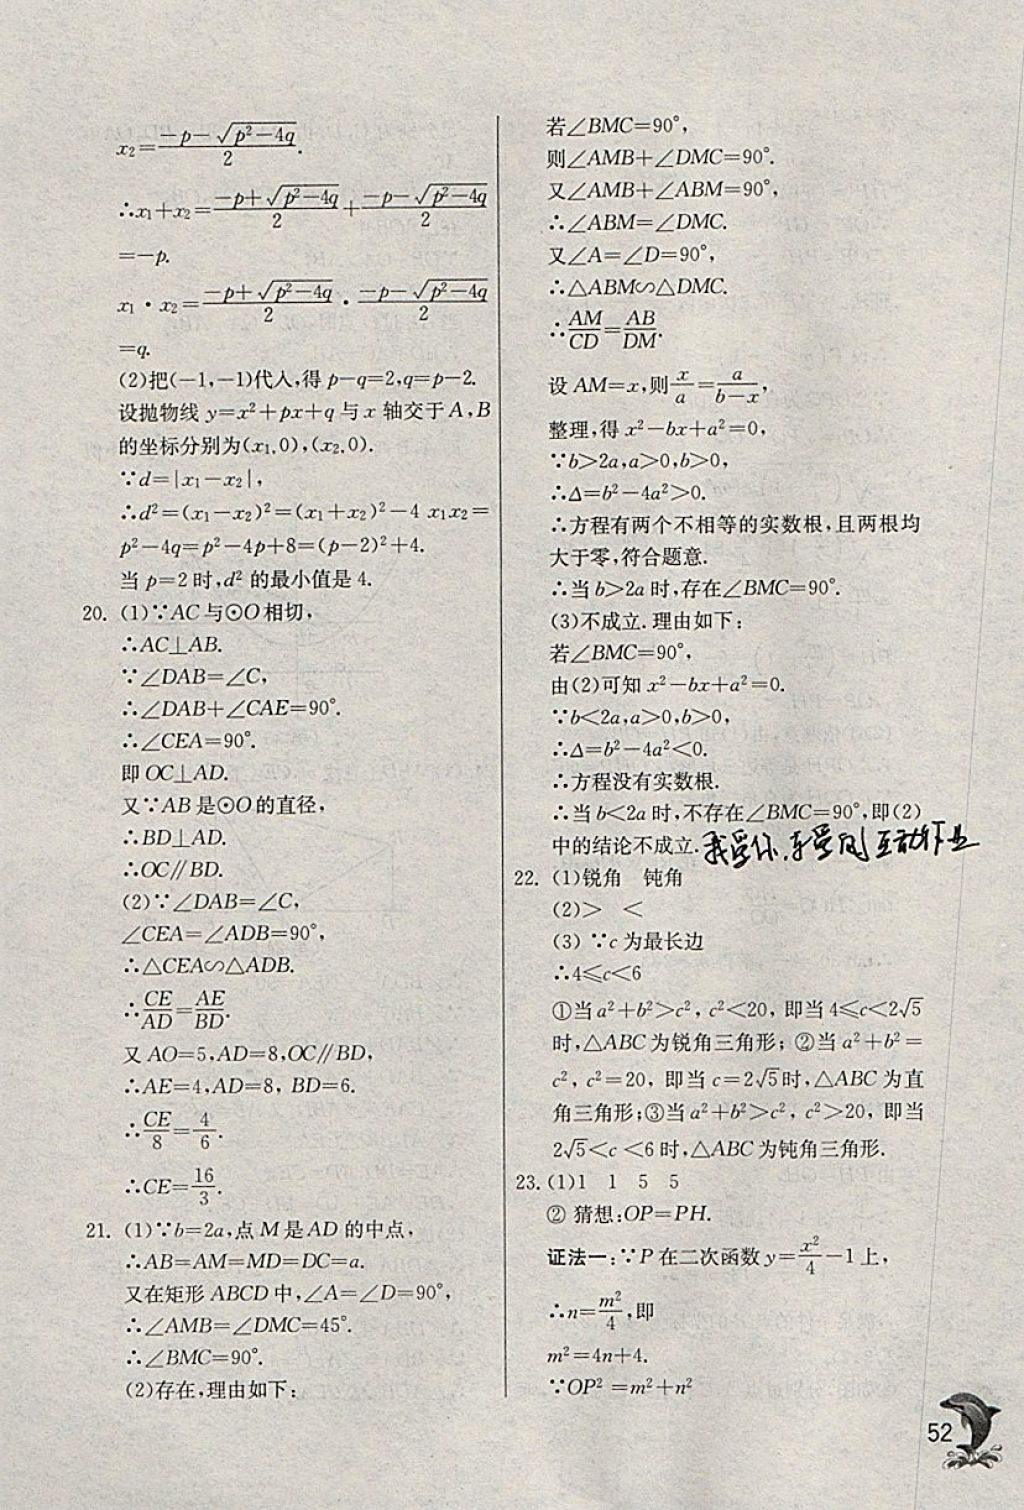 x₂=(-p-√(p²-4q))/2.
∴x₁+x₂=(-p+√(p²-4q))/2+(-p-√(p²-4q))/2
=-p.
x₁·x₂=(-p+√(p²-4q))/2·(-p-√(p²-4q))/2
=q.
(2)把(-1,-1)代人,得p-q=2,q=p-2.
设抛物线y=x²+px+q与x轴交于A,B
的坐标分别为(x₁,0),(x₂,0).
∵d=|x₁-x₂|,
∴d²=(x₁-x₂)²=(x₁+x₂)²-4 x₁x₂=
p²-4q=p²-4p+8=(p-2)²+4.
当p=2时,d²的最小值是4.
20. (1)∵AC与⊙O相切,
∴AC⊥AB.
∵∠DAB=∠C,
∴∠DAB+∠CAE=90°.
∴∠CEA=90°.
即OC⊥AD.
又∵AB是⊙O的直径,
∴BD⊥AD.
∴OC∥BD.
(2)∵∠DAB=∠C,
∠CEA=∠ADB=90°,
∴△CEA∽△ADB.
∴CE/AD=AE/BD.
又AO=5,AD=8,OC∥BD,
∴AE=4,AD=8, BD=6.
∴CE/8=4/6.
∴CE=16/3.
21. (1)∵b=2a,点M是AD的中点,
∴AB=AM=MD=DC=a.
又在矩形ABCD中,∠A=∠D=90°,
∴∠AMB=∠DMC=45°.
∴∠BMC=90°.
(2)存在,理由如下:
若∠BMC=90°,
则∠AMB+∠DMC=90°.
又∠AMB+∠ABM=90°,
∴∠ABM=∠DMC.
又∠A=∠D=90°,
∴△ABM∽△DMC.
∴AM/CD=AB/DM.
设AM=x,则x/a=a/(b-x),
整理,得x²-bx+a²=0,
∵b>2a,a>0,b>0,
∴Δ=b²-4a²>0.
∴方程有两个不相等的实数根,且两根均
大于零,符合题意.
∴当b>2a时,存在∠BMC=90°.
(3)不成立.理由如下:
若∠BMC=90°,
由(2)可知x²-bx+a²=0.
∵b<2a,a>0,b>0,
∴Δ=b²-4a²<0.
∴方程没有实数根.
∴当b<2a时,不存在∠BMC=90°,即(2)
中的结论不成立.
22. (1)锐角 钝角
(2)> <
(3) ∵c为最长边
∴4≤c<6
①当a²+b²>c², c²<20, 即当4≤c<2√5
时,△ABC为锐角三角形; ②当a²+b²=
c², c²=20, 即当c=2√5时,△ABC为直
角三角形;③当a²+b²>c², c²>20, 即当
2√5<c<6时,△ABC为钝角三角形.
23. (1)1 1 5 5
② 猜想:OP=PH.
证法一:∵P在二次函数y=x²/4-1上,
∴n=m²/4,即
m²=4n+4.
∵OP²=m²+n²
52